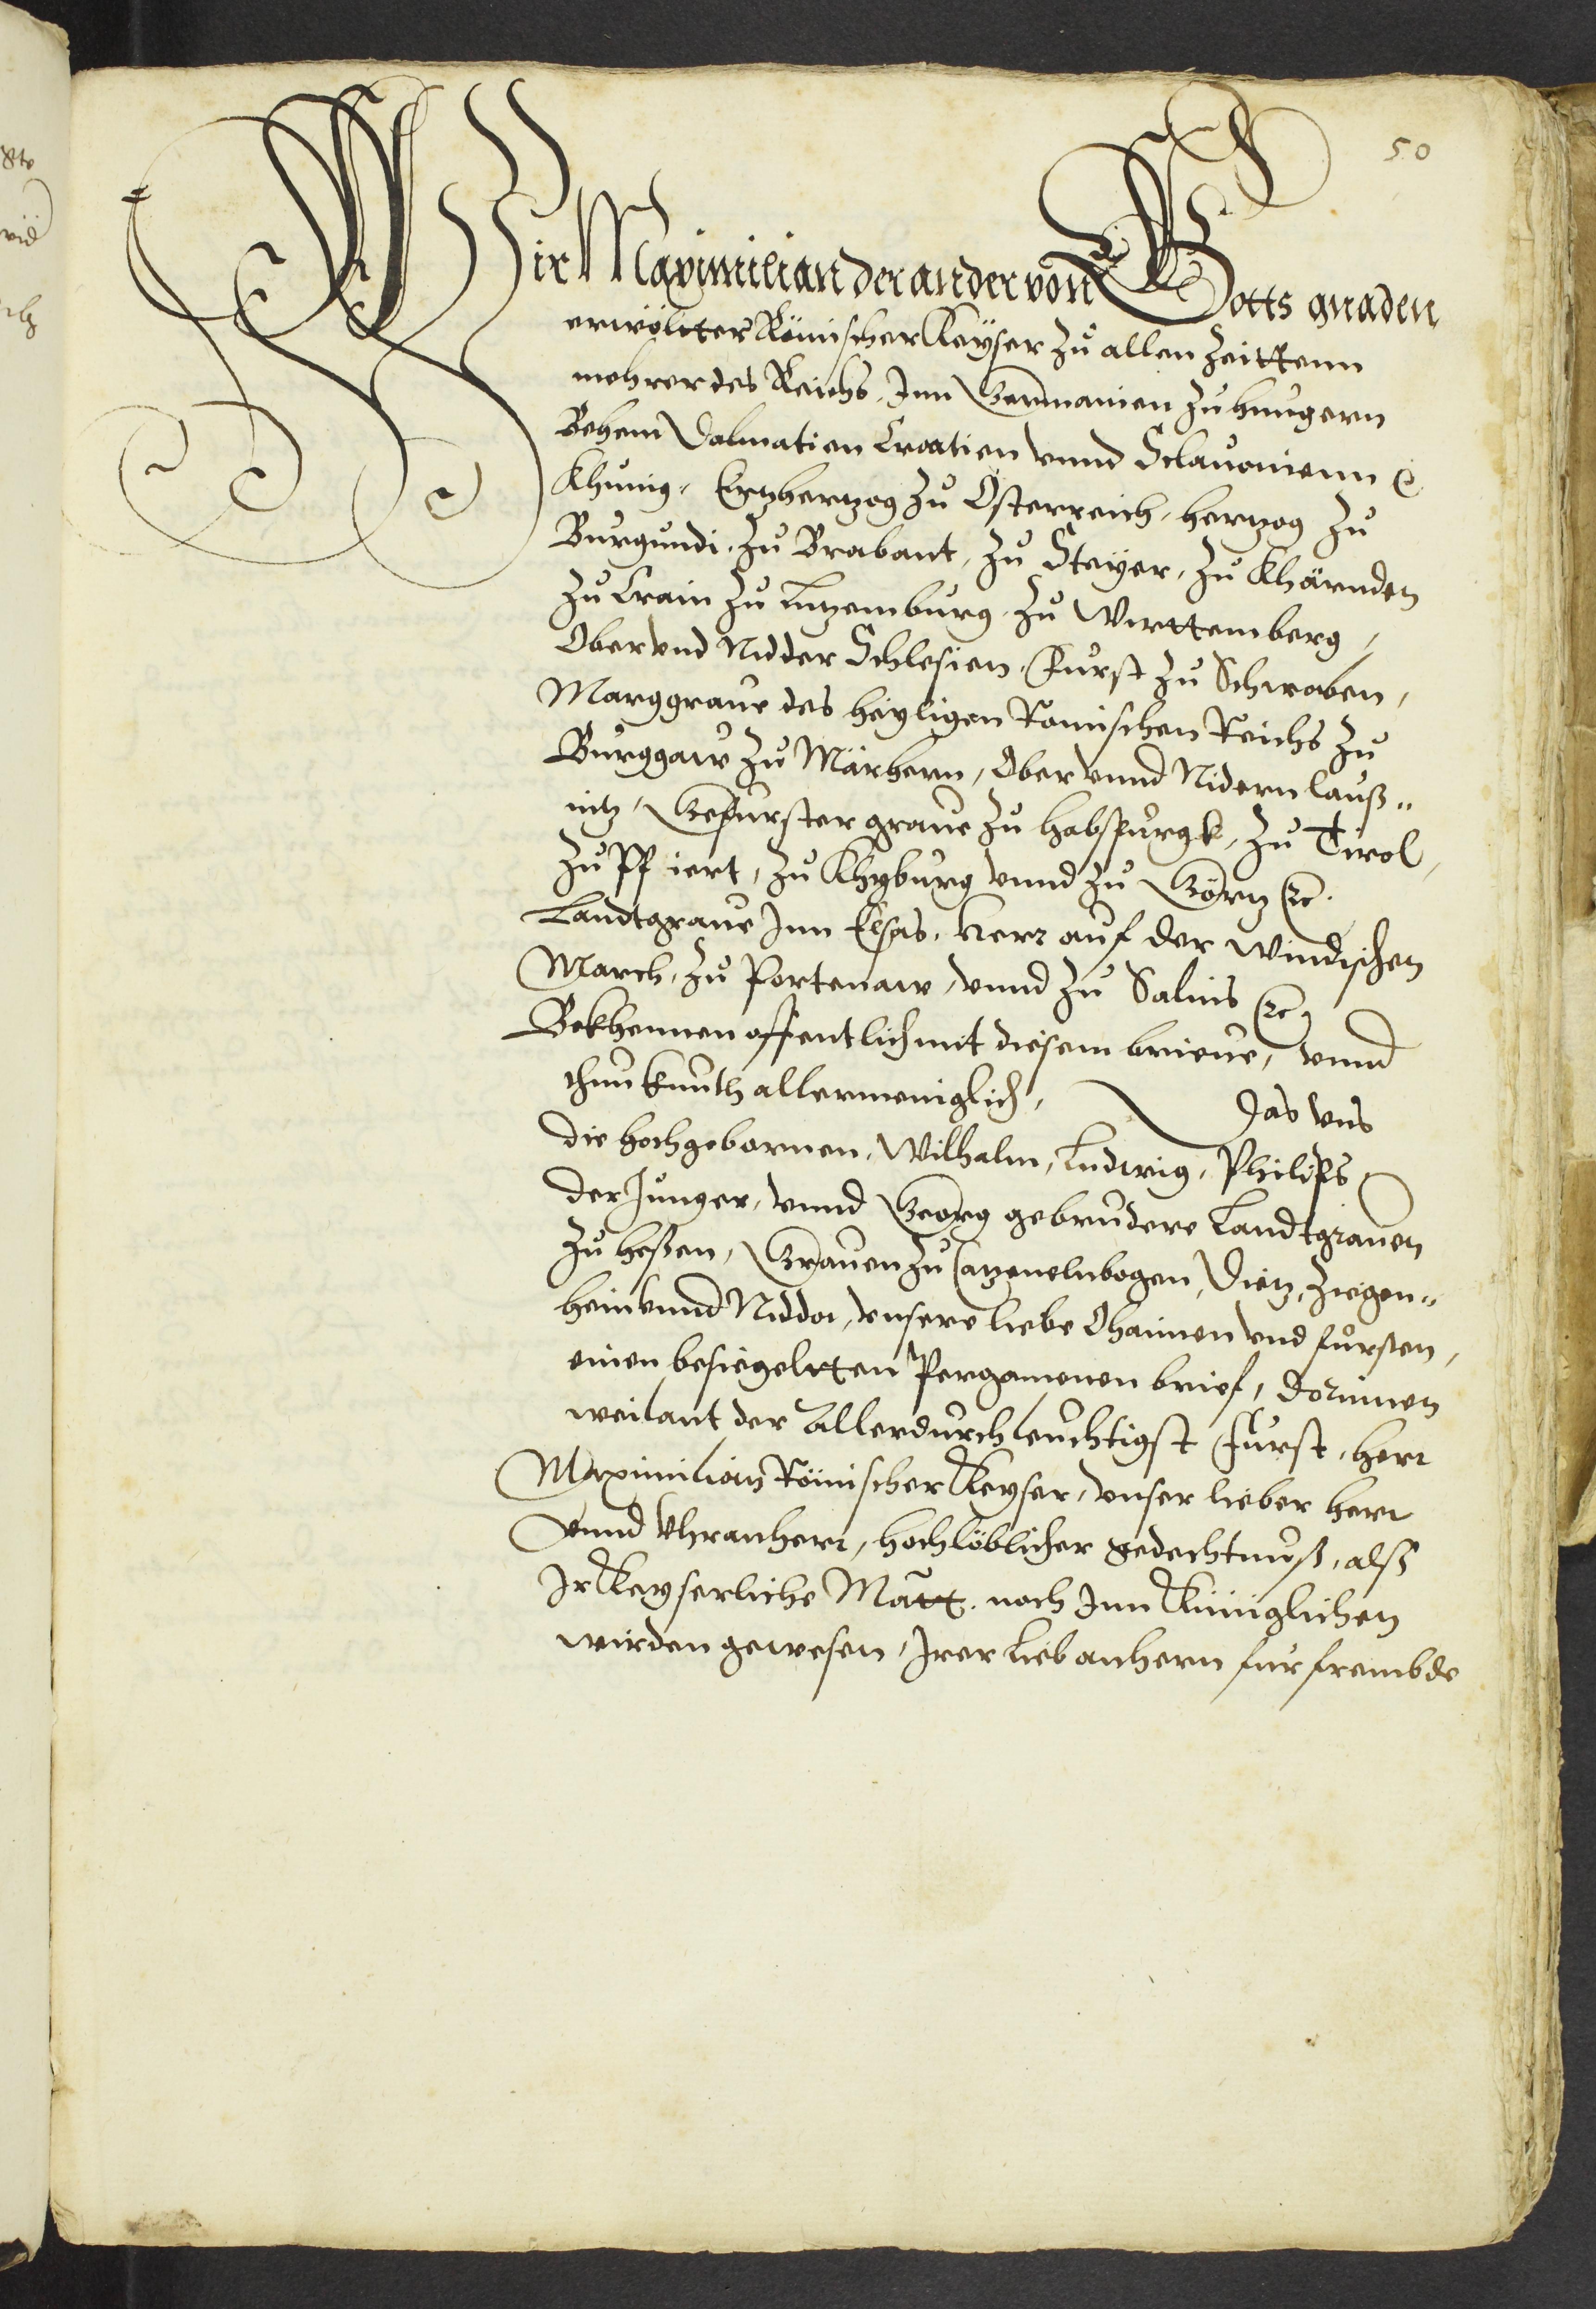 50
Wir Maximilian der ander von Gotts gnaden
erwölltter Römischer Keyser zu allen Zeittenn
mehrer des Reichs, Inn Germanien zu hungern
Behem Dalmatien Croatien vnnd Sclauonienn ꝛc
Khunig, Ertzhertzog zu Österreich, hertzog zu
Burgundi, zu Brabant, zu Steyer, zu Khärnden
zu Crain zu Lutzemburg, zu Wirttemberg,
Ober vnd Nidder Schlesien, Furst zu Schwaben,
Marggraue des heyligen Romischen Reichs zu
Burggaw zu Märhern, Ober vnnd Nidern lauß„
nitz, Gefurster graue zu habspurgk, zu Tirol,
zu Pfiert, zu Khyburg vnnd zu Görtz ꝛc.
Landtgraue Inn Elsas, Herr auf der Windischen
March, zu Portenaw, vnnd zu Salins ꝛc,
Bekhennen offentlich mit diesem brieue, vnnd
thun kunth allermeniglich, Das vns
die hochgebornen, Wilhalm, Ludwig, Philips
der Junger, vnnd Georg gebrudere Landtgrauen
zu heßen, Grauen zu Catzenelnbogen, Dietz, Ziegen„
hein vnnd Nidda, vnsere liebe Ohaimen vnd fursten,
einen besiegeltten Pergamenen brief, dorinnen
weilant der Allerdurchleuchtigst Furst, herr
Maximilian Römischer Keyser, vnser lieber herr
vnnd Vhranherr, hochlöblicher gedechtnuß, alß
Ir Keyserliche Matt. noch Inn Küniglichen
wirden gewesen, Irer Lieb anhern fur frembde